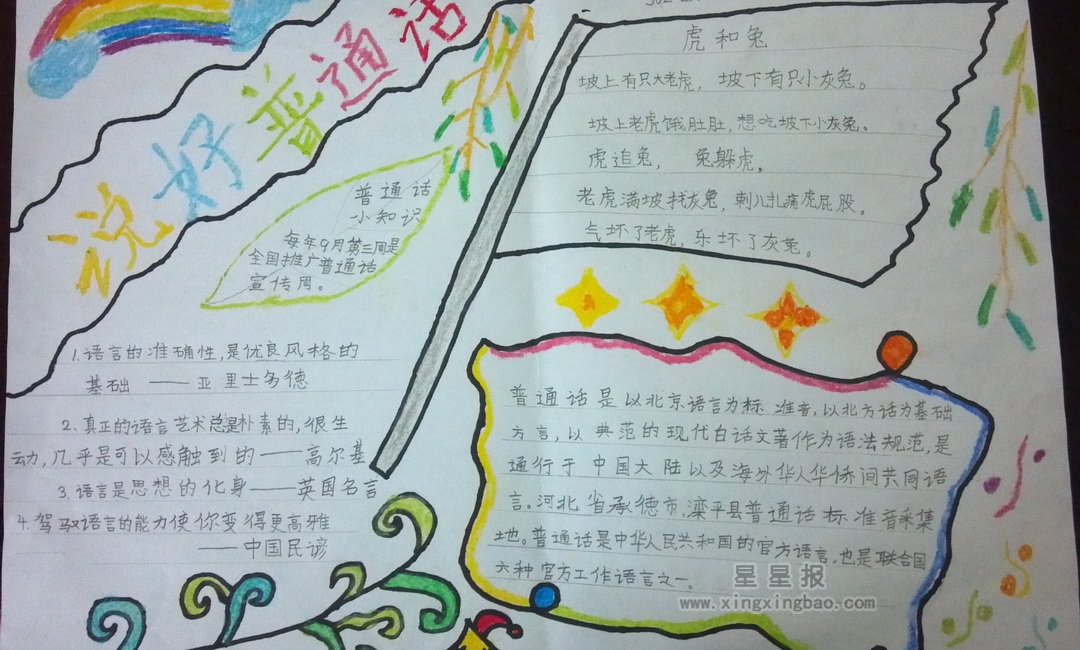 说好普通话
普通话
小知识
每年9月第三周是
全国推广普通话
宣传周。
虎和兔
坡上有只大老虎，坡下有只小灰兔。
坡上老虎饿肚肚，想吃坡下小灰兔。
虎追兔，兔躲虎，
老虎满坡找灰兔，刺儿扎痛虎屁股。
气坏了老虎，乐坏了灰兔。
1.语言的准确性，是优良风格的
基础 ——亚里士多德
2.真正的语言艺术总是朴素的，很生
动，几乎是可以感触到的——高尔基
3.语言是思想的化身——英国名言
4.驾驭语言的能力使你变得更高雅
——中国民谚
普通话是以北京语言为标准音，以北方话为基础
方言，以典范的现代白话文著作为语法规范，是
通行于中国大陆以及海外华人华侨间共同语
言。河北省承德市滦平县普通话标准音采集
地。普通话是中华人民共和国的官方语言，也是联合国
六种官方工作语言之一。
星星报
www.xingxingbao.com